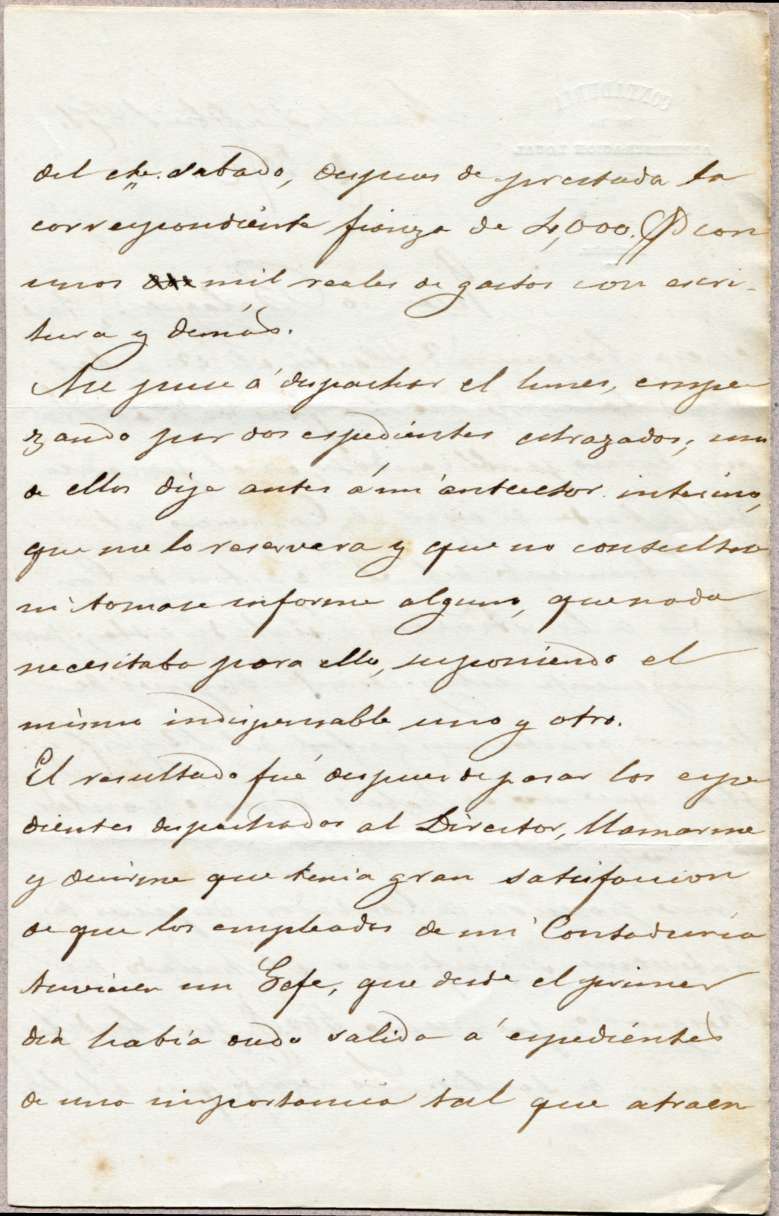 del cte. sabado, despues de prestada la
correspondiente fianza de 4,000. P con
unos mil reales de gastos con escri-
tura y demás.
Me puse á despachar el lunes, empe
zando por dos espedientes atrazados; uno
de ellos dije antes á mi antector interino,
que me lo reservara y que no consultase
ni tomase informe alguno, que nada
necesitaba para ello, suponiendo el
mismo indispensable uno y otro.
El resultado fué despues de pasar los espe
dientes despachados al Director, llamarme
y decirme que tenia gran satisfaccion
de que los empleados de mi Contaduria
tuviesen un Gefe, que desde el primer
dia había dado salida á espedientes
de una importancia tal que atraen
CONTADURIA
DE
ADMINISTRACION LOCAL